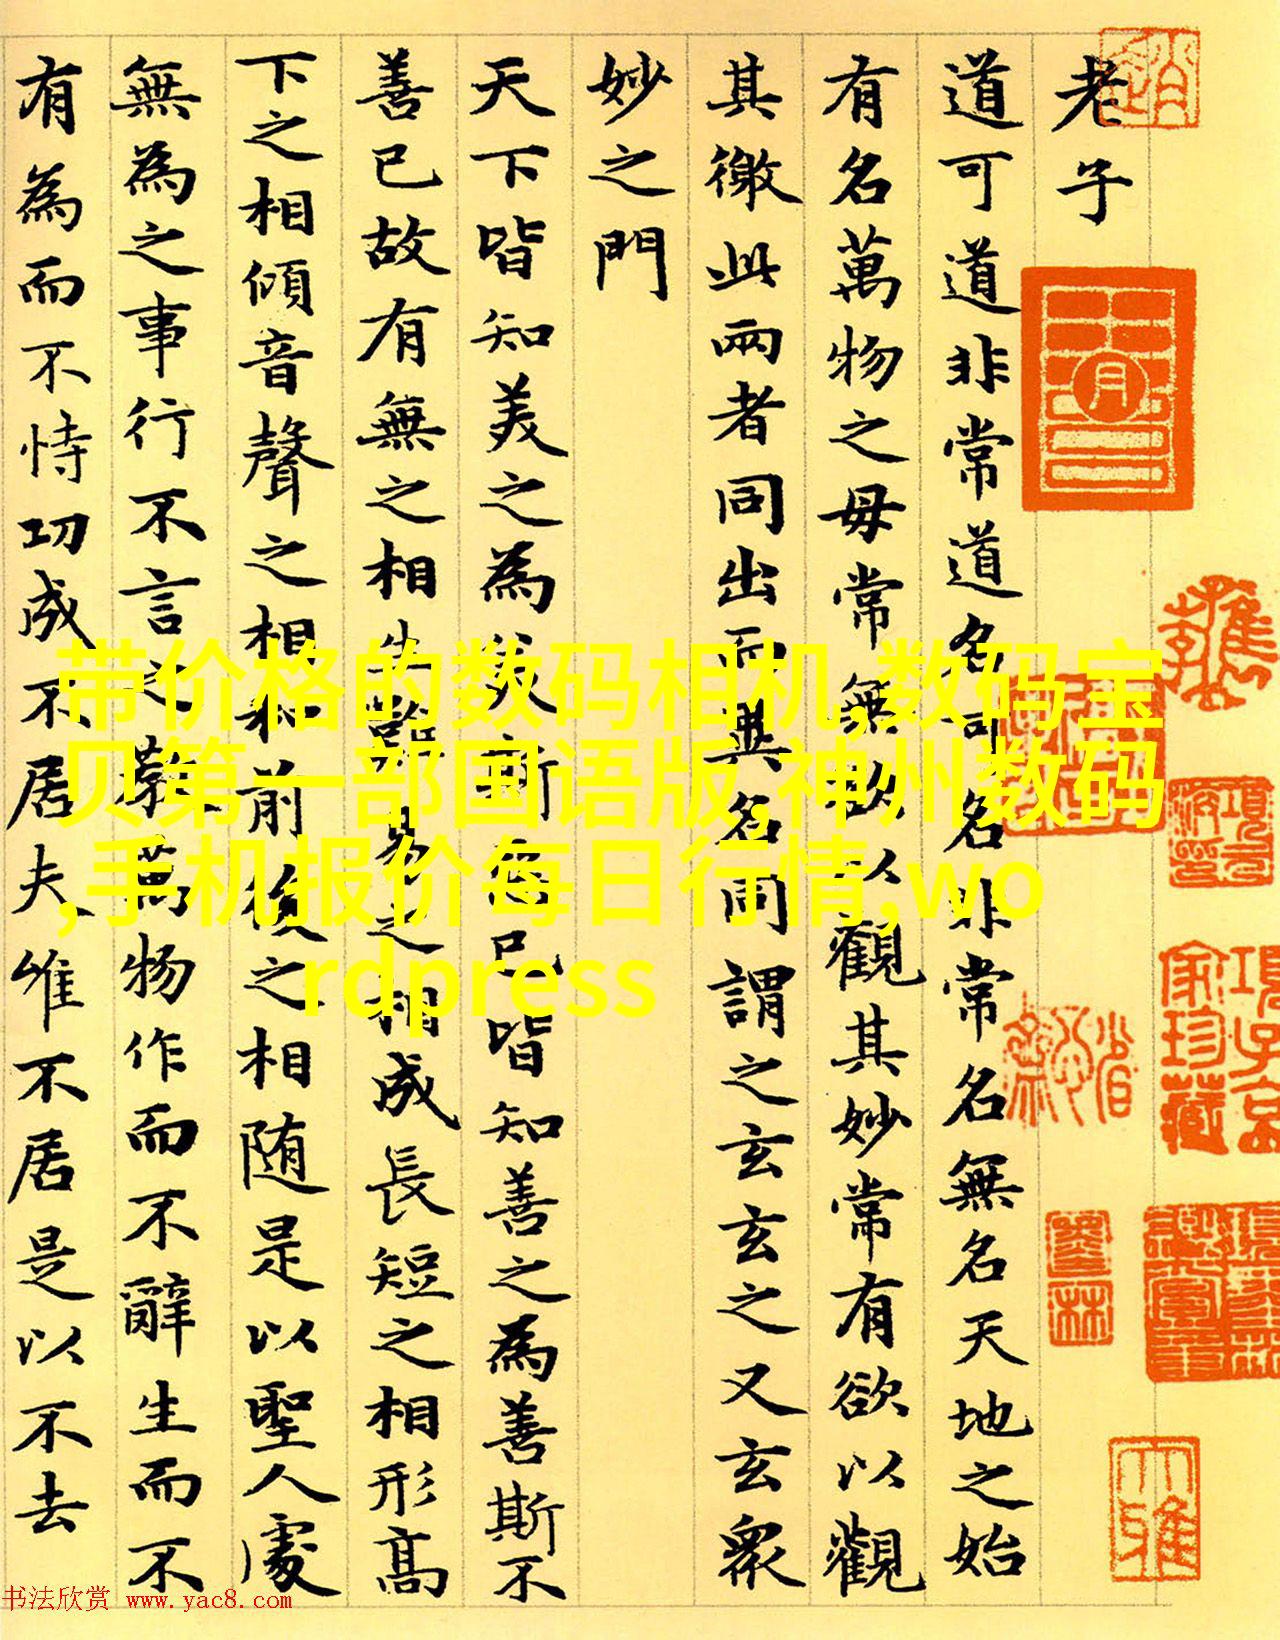 老子
道可道非常道名可名非常名無名天地之始
有名萬物之母常無欲以觀其妙常有欲以觀
其徼此兩者同出而異名同謂之玄玄之又玄衆
妙之門
天下皆知美之為美斯惡已皆知善之為善斯不
善已故有無之相生難易之相成長短之相形高
下之相傾音聲之相和前後之相随是以聖人處
無為之事行不言之教萬物作而不辭生而不
有為而不恃功成不居夫唯不居是以不去
項子京
家珍藏
带价格的数码相机,数码宝
贝第一部国语版,神州数码
,手机报价每日行情,wo
rdpress
书法欣赏 www.yac8.com